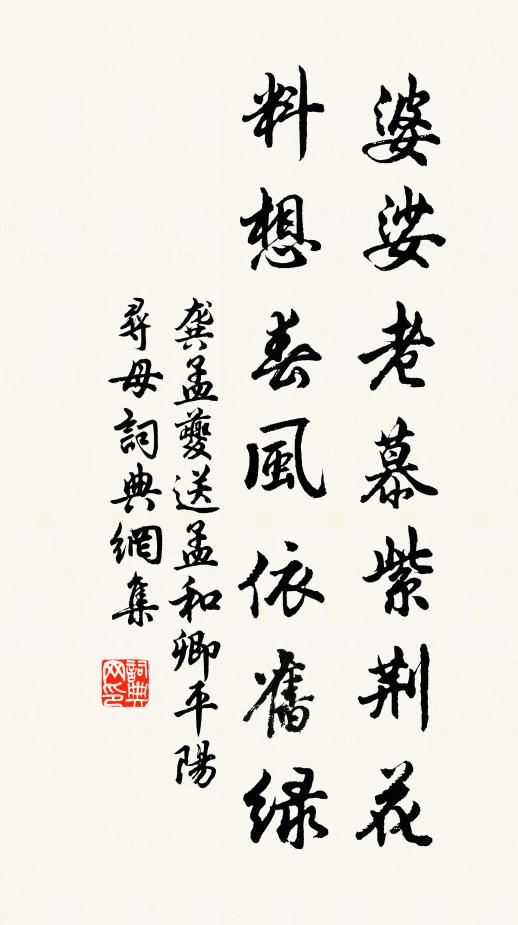 婆娑老慕紫荆花
料想春風依舊绿
龔孟夔送孟和卿平陽
尋母詞典網集
詞典网印